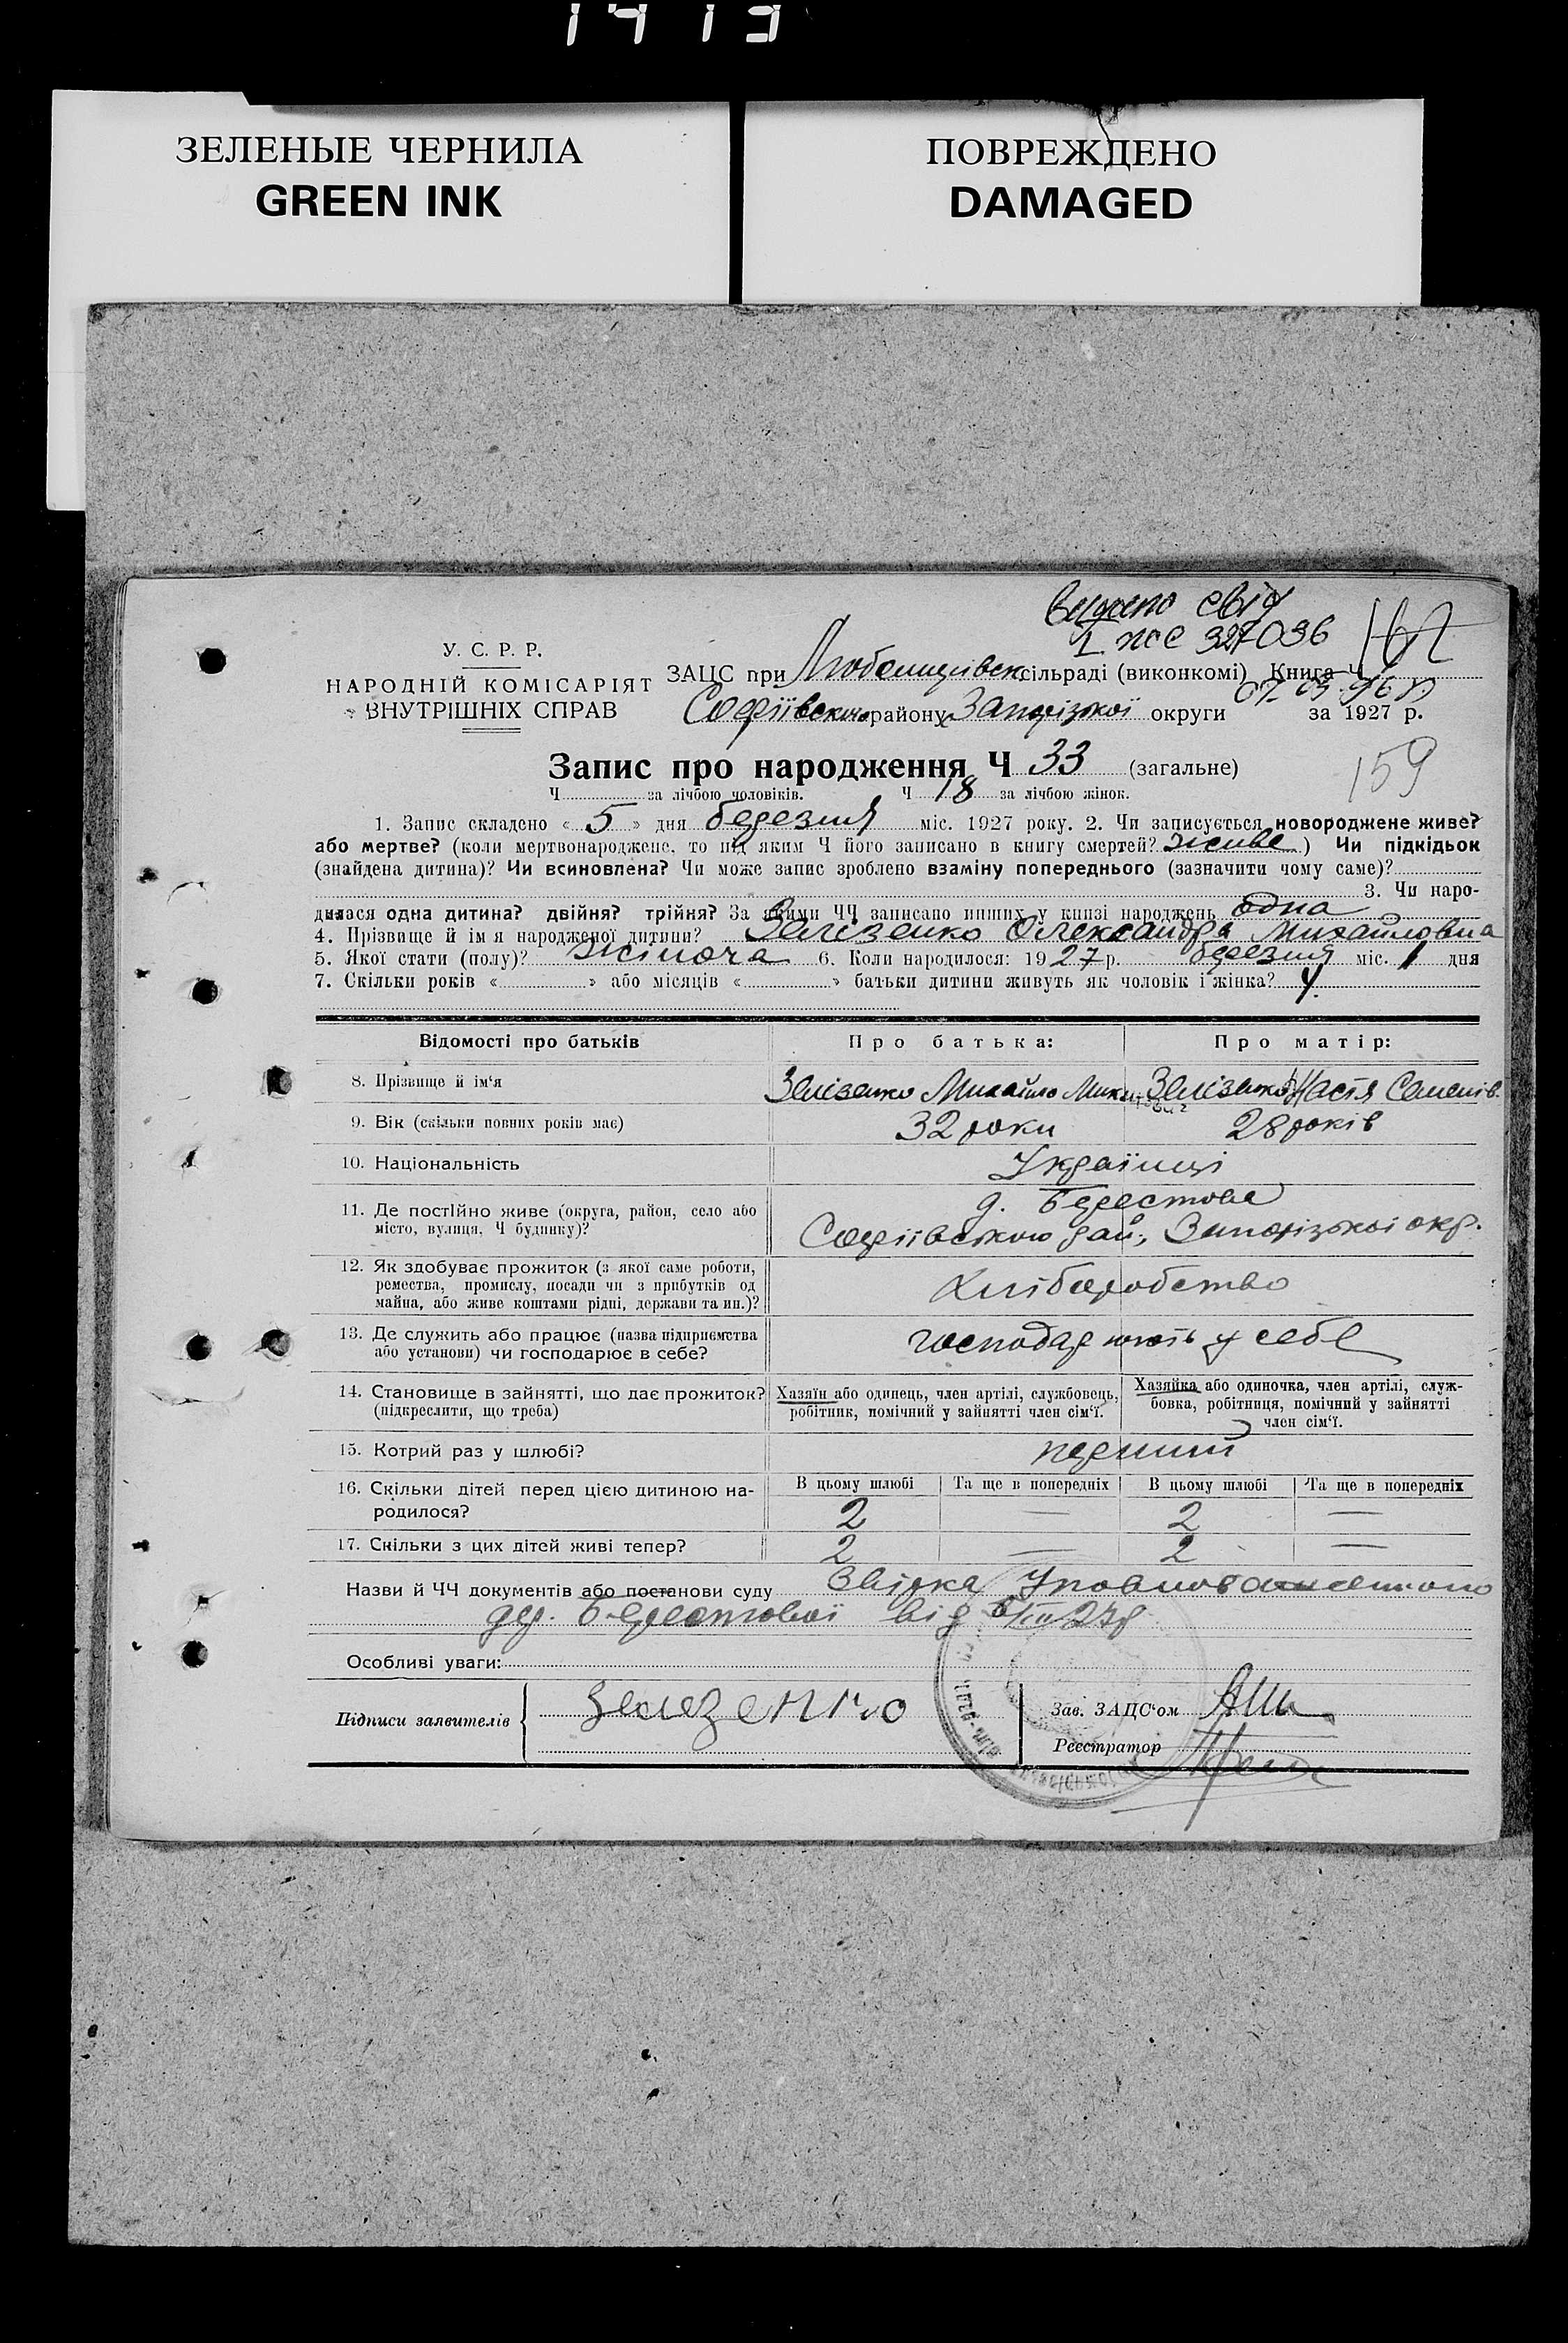 1413
ЗЕЛЕНЫЕ ЧЕРНИЛА
GREEN INK
ПОВРЕЖДЕНО
DAMAGED
видано свід
І ЖС 327036
У. С. Р. Р.
НАРОДНІЙ КОМІСАРІЯТ
ВНУТРІШНІХ СПРАВ
ЗАЦС при Любомирівск сільраді (виконкомі) Книга Ч
Софіївского району Запорізької округи за 1927 р.
Запис про народження Ч 33 (загальне)
159
Ч за лічбою чоловіків. Ч 18 за лічбою жінок.
1. Запис складено « 5 » дня березня міс. 1927 року. 2. Чи записується новороджене живе?
або мертве? (коли мертвонароджене, то під яким Ч його записано в книгу смертей? живе ) Чи підкідьок
(знайдена дитина)? Чи всиновлена? Чи може запис зроблено взаміну попереднього (зазначити чому саме)?
3. Чи наро-
дилася одна дитина? двійня? трійня? За якими ЧЧ записано инших у книзі народжень одна
4. Прізвище й імя народженої дитини? Залізенко Олександра Михайловна
5. Якої стати (полу)? жіноча 6. Коли народилося: 1927 р. березня міс. 1 дня
7. Скільки років « » або місяців « » батьки дитини живуть як чоловік і жінка? 4
Відомості про батьків Про батька: Про матір:
8. Прізвище й ім'я Залізенко Михайло Микитович Залізенко Настя Семенів.
9. Вік (скільки повних років має) 32 роки 28 років
10. Національність Українці
11. Де постійно живе (округа, район, село або
місто, вулиця, Ч будинку)?
д. Берестова
Софіївського рай., Запорізької окр.
12. Як здобуває прожиток (з якої саме роботи,
ремества, промислу, посади чи з прибутків од
майна, або живе коштами рідні, держави та ин.)?
Хліборобство
13. Де служить або працює (назва підприємства
або установи) чи господарює в себе?
господарюють у себе
14. Становище в зайнятті, що дає прожиток?
(підкреслити, що треба)
Хазяїн або одинець, член артілі, службовець,
робітник, помічний у зайнятті член сім'ї.
Хазяйка або одиночка, член артілі, служ-
бовка, робітниця, помічний у зайнятті
член сім'ї.
15. Котрий раз у шлюбі? перший
16. Скільки дітей перед цією дитиною на-
родилося?
В цьому шлюбі Та ще в попередніх В цьому шлюбі Та ще в попередніх
2 — 2 —
17. Скільки з цих дітей живі тепер? 2 — 2 —
Назви й ЧЧ документів або постанови суду Звідка Уповноваженного
дер. Берестової від 5/III 27р
Особливі уваги:
Підписи заявителів Зелезенко
Зав. ЗАЦС'ом
Реєстратор